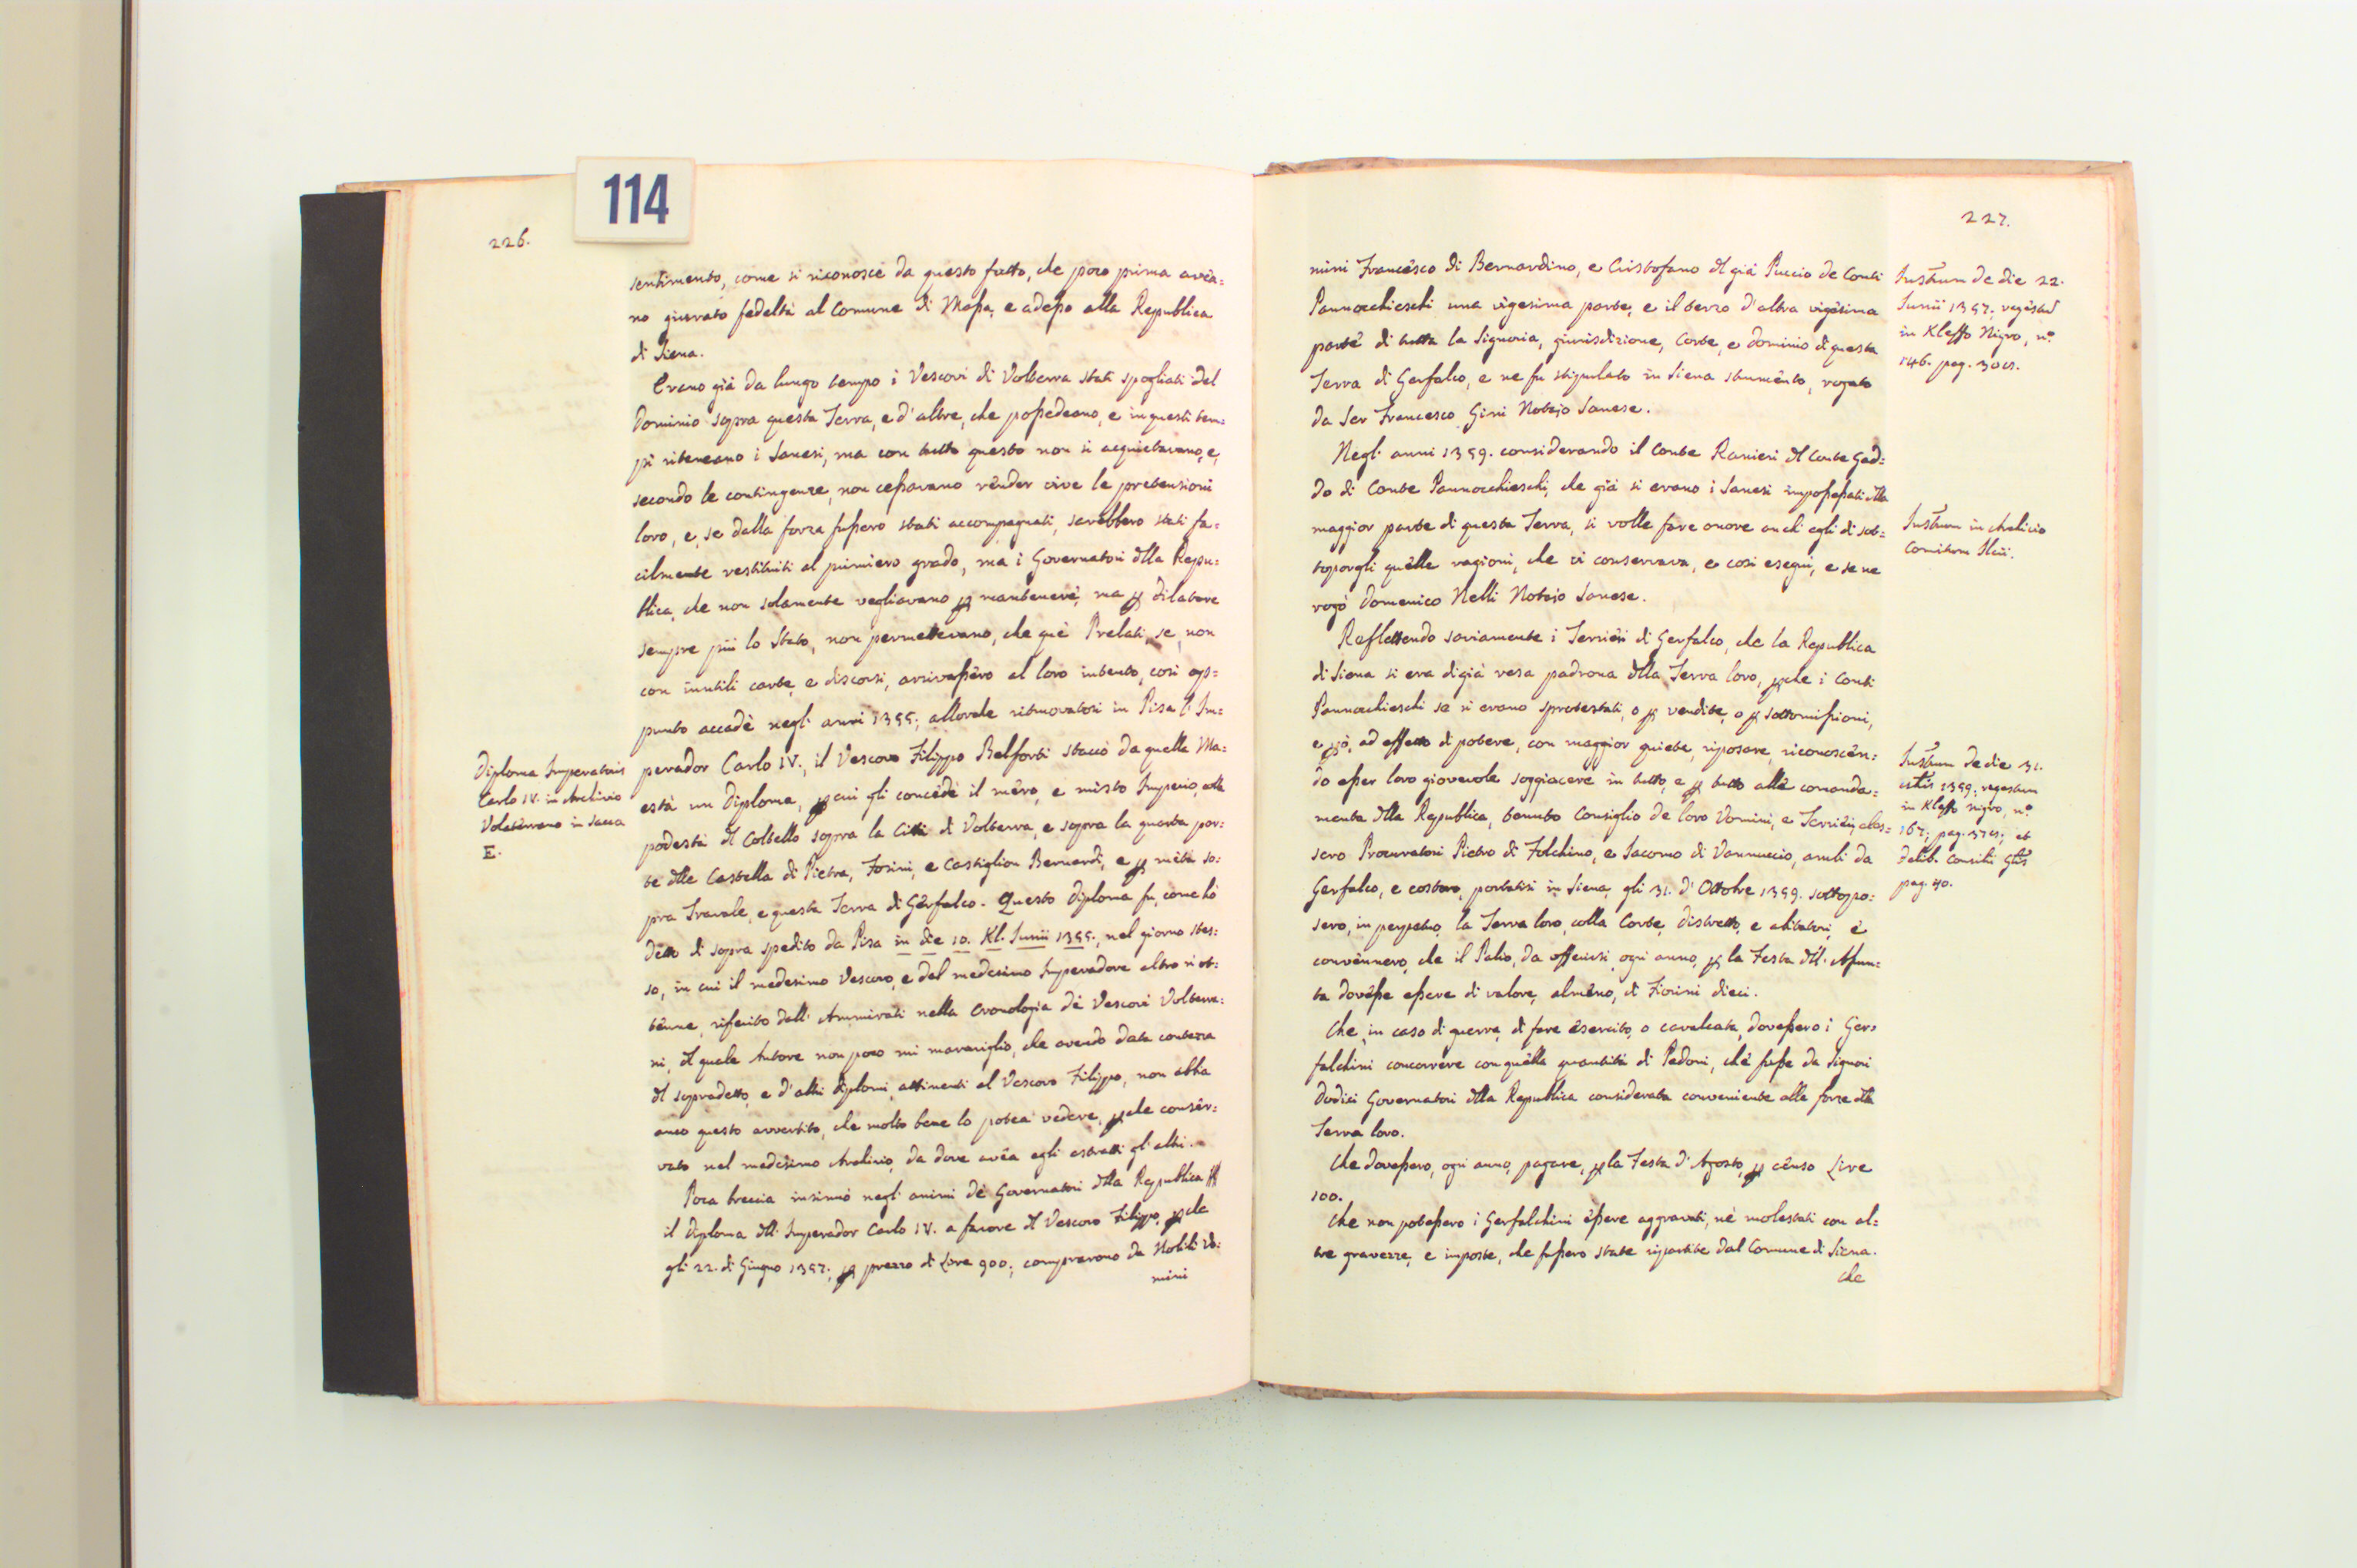 114
226.
sentimento, come si riconosce da questo fatto, che poco prima avèa=
no giurato fedeltà al Comune di Massa, e adesso alla Republica
di Siena.
Erano già da lungo tempo i Vescovi di Volterra stati spogliati del
Dominio sopra questa Terra, e d'altre, che possedeano, e in questi tem=
pi riteneano i Sanesi, ma con tutto questo non si acquietavano, e,
secondo le contingenze, non cessavano rènder vive le pretensioni
loro, e, se dalla forza fussero stati accompagnati, sarebbero stati fa=
cilmente restituiti al primiero grado, ma i Governatori dlla Repu=
blica, che non solamente vegliavano p mantenere, ma p dilatare
sempre più lo Stato, non permettevano, che què Prelati, se, non
con inutili carte, e discorsi, arrivassèro al loro intento, così ap=
punto accadè negl'anni 1355; allorche ritrovatosi in Pisa l'Im=
perador Carlo IV., il Vescovo Filippo Belforti staccò da quella Ma=
està un Diploma, p cui gli concèdè il mèro, e misto Imperio, colla
podestà dl Coltello sopra la Città di Volterra, e sopra la quarta par=
te dlle Castella di Pietra, Fosini, e Castiglion Bernardi, e p mètà so=
pra Travale, e questa Terra di Gèrfalco. Questo Diploma fu, come hò
detto di sopra spedito da Pisa in die 10. Kl. Junii 1355., nel giorno stes=
so, in cui il medesimo Vescovo, e dal medesimo Imperadore altro ri ot=
tènne, riferito dall'Ammirati nella Cronologia dè Vescovi Volterra=
ni, dl quale Autore non poco mi maraviglio, che avendo data contezza
dl sopradetto, e d'altri diplomi, attinenti al Vescovo Filippo, non abbia
anco questo avvertito, che molto bene lo potea vedere, pche consèr=
vato nel medèsimo Archivio, da dove avèa egli estratti gl'altri.
Poca breccia insinuò negl'animi dè Governatori dlla Republica
il Diploma dll'Imperador Carlo IV. a favore dl Vescovo Filippo, pche
gli 22. di Giugno 1357; p prezzo di Lire 900; comprarono da Nobili Do=
mini
Diploma Imperatoris
Carlo IV. in Archivio
Volaterrano in Sacca
E.
227.
mini Francèsco di Bernardino, e Cristofano dl già Puccio de Conti
Pannocchieschi una vigesima parte, e il terzo d'altra vigèsima
partè di tutta la Signoria, giurisdizione, Corte, e dominio di questa
Terra di Gerfalco, e ne fu stipulato in Siena strumènto, rogato
da Ser Francesco Gini Notajo Sanese.
Negl'anni 1359. considerando il Conte Ranieri dl Conte Gad=
do di Conte Pannocchieschi, che già si erano i Sanesi impossessati dlla
maggior parte di questa Terra, si volle fare onore anch'egli di sot=
toporgli quèlle ragioni, che vi conservava, e così eseguì, e se ne
rogò Domenico Nelli Notajo Sanese.
Reflettendo saviamente i Terrièri di Gerfalco, che la Republica
di Siena si era digià resa padrona dlla Terra loro, pche i Conti
Pannocchieschi se ri erano sprotestati, o p vendite, o p sottomissioni,
e pciò, ad effetto di potere, con maggior quiete, riposare, riconoscèn=
do esser loro giovevole soggiacere in tutto, e p tutto allè comanda=
menta dlla Republica, tenuto Consiglio de loro Uomini, e Terrièri, eles=
sero Procuratori Pietro di Folchino, e Jacomo di Vannuccio, ambi da
Gerfalco, e costoro, portatisi in Siena, gli 31. d'Ottobre 1359. sottopo=
sero, in perpetuo, la Terra loro, colla Corte, distretto, e abitatori, è
convènnero, che il Palio, da offerirsi, ogni anno, p la Festa dll'Assun=
ta dovèsse essere di valore, almèno, di Fiorini dieci.
Che, in caso di guerra, di fare èsercito, o cavalcata, dovessero i Ger=
falchini concorrere con quèlla quantità di Pedoni, chè fusse da Signori
Dodici Governatori dlla Republica considerata conveniente alle forze dlla
Terra loro.
Che dovessero, ogni anno, pagare, p la Festa d'Agosto, p cènso Lire
100.
Che non potessero i Gerfalchini èssere aggravati, nè molestati con al=
tre gravezze, e imposte, che fussero state ripartite dal Comune di Siena.
che
Instrum de die 22.
Junii 1357; regèstat
in Kleffo Nigro, n.o
146. pag. 30
Instrum in Archivio
Comitum Ilcii.
Instrum de die 31.
1359; regestum
in Kleffo nigro, n.o
167; pag. 37 et
Delib. Consilii Glis
pag. 40.